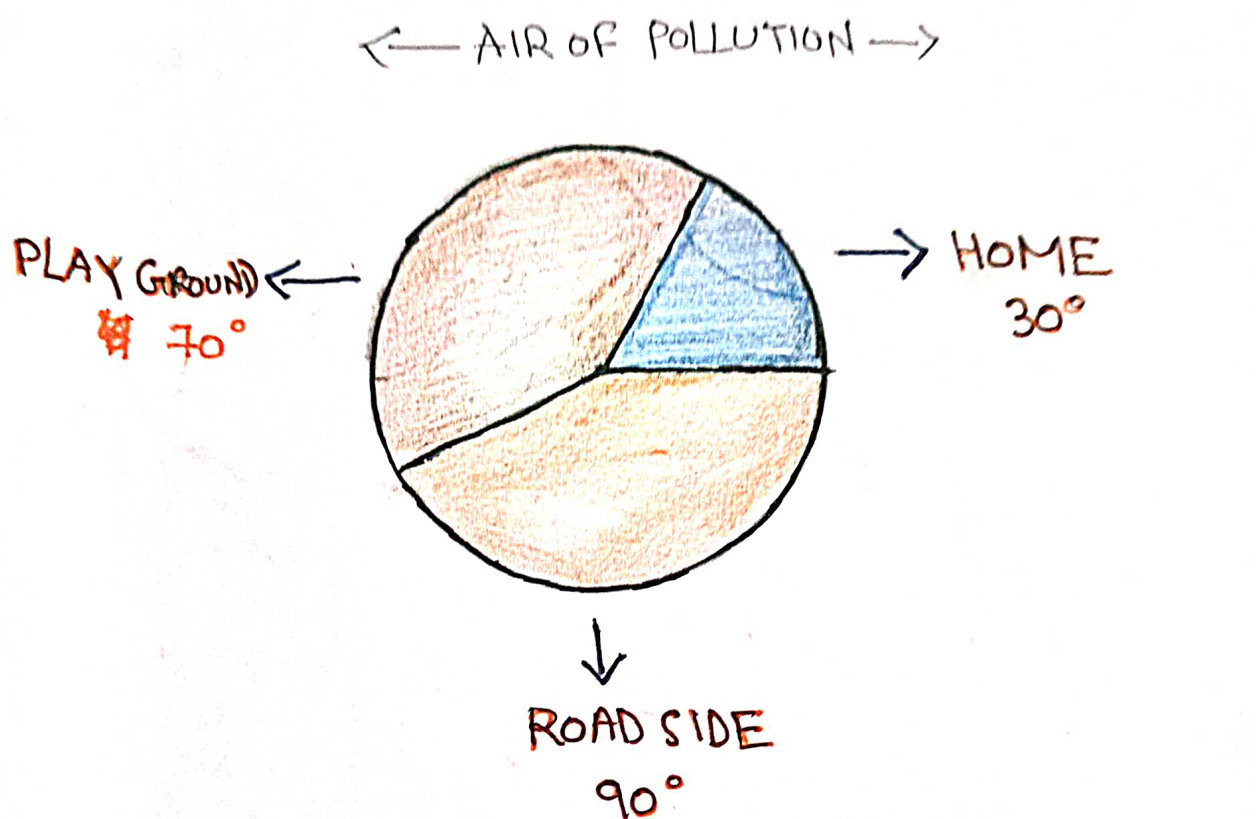 AIR OF POLLUTION
PLAY GROUND
70°
HOME
30°
ROAD SIDE
90°